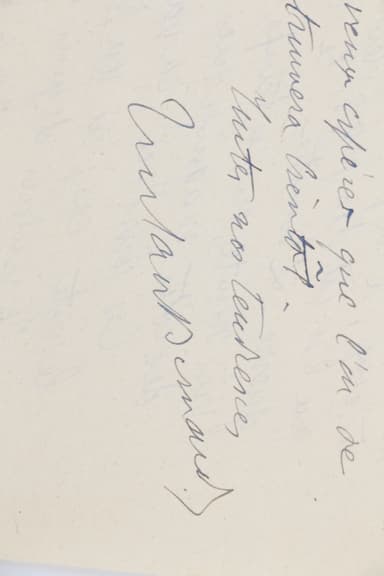 veux espérer que l'on se
trouvera bientôt.
Toutes nos tendresses
Tristan Bernard